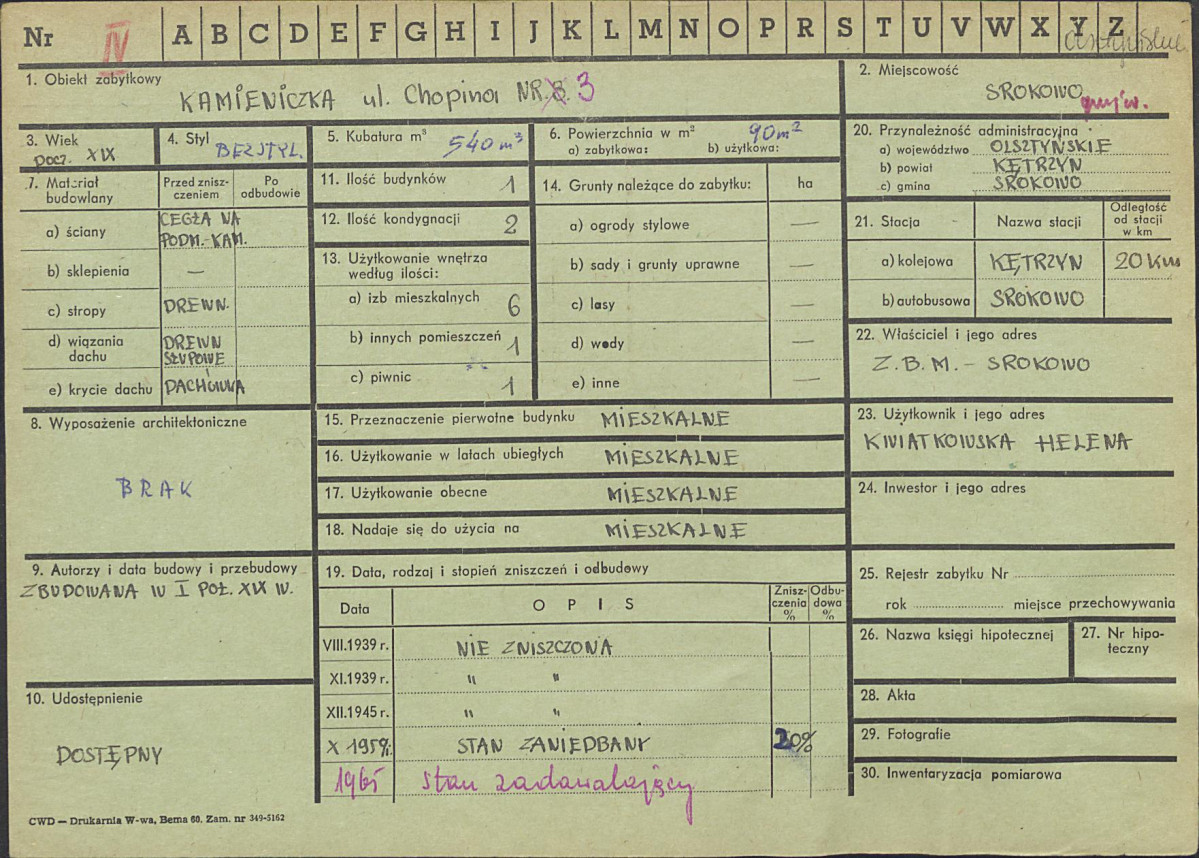 Nr IV A B C D E F G H I J K L M N O P R S T U V W X Y Z
1. Obiekt zabytkowy
KAMIENICZKA ul. Chopina NR. 8. 3
2. Miejscowość
SROKOWO
3. Wiek
pocz. XIX
4. Styl
BEZSTYL.
5. Kubatura m³ 540 m³
6. Powierzchnia w m² 90 m²
a) zabytkowa: b) użytkowa:
20. Przynależność administracyjna
a) województwo OLSZTYŃSKIE
b) powiat KĘTRZYN
c) gmina SROKOWO
7. Materiał budowlany
Przed zniszczeniem
Po odbudowie
a) ściany CEGŁA NA
PODM.-KAM.
b) sklepienia —
c) stropy DREWN.
d) wiązania dachu DREWN
SŁUPOWE
e) krycie dachu DACHÓWKA
11. Ilość budynków 1
12. Ilość kondygnacji 2
13. Użytkowanie wnętrza
według ilości:
a) izb mieszkalnych 6
b) innych pomieszczeń 1
c) piwnic 1
14. Grunty należące do zabytku: ha
a) ogrody stylowe —
b) sady i grunty uprawne —
c) lasy —
d) wody —
e) inne —
21. Stacja Nazwa stacji Odległość
od stacji
w km
a) kolejowa KĘTRZYN 20 km
b) autobusowa SROKOWO
22. Właściciel i jego adres
Z.B.M. - SROKOWO
8. Wyposażenie architektoniczne
BRAK
15. Przeznaczenie pierwotne budynku MIESZKALNE
16. Użytkowanie w latach ubiegłych MIESZKALNE
17. Użytkowanie obecne MIESZKALNE
18. Nadaje się do użycia na MIESZKALNE
23. Użytkownik i jego adres
KWIATKOWSKA HELENA
24. Inwestor i jego adres
9. Autorzy i data budowy i przebudowy
ZBUDOWANA W I POŁ. XIX W.
10. Udostępnienie
DOSTĘPNY
19. Data, rodzaj i stopień zniszczeń i odbudowy
Data OPIS Zniszczenia % Odbudowa %
VIII.1939 r. NIE ZNISZCZONA
XI.1939 r. " "
XII.1945 r. " "
X 1959r. STAN ZANIEDBANY 20%
1965 stan zadawalający
25. Rejestr zabytku Nr
rok miejsce przechowywania
26. Nazwa księgi hipotecznej
27. Nr hipoteczny
28. Akta
29. Fotografie
30. Inwentaryzacja pomiarowa
CWD — Drukarnia W-wa, Bema 60. Zam. nr 349-5162